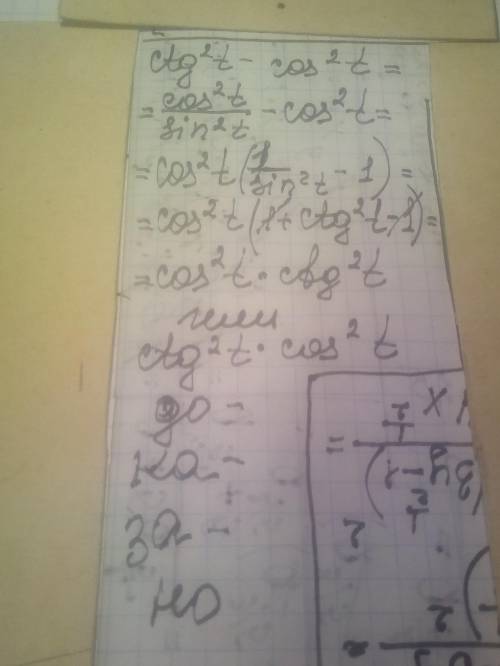 ctg²t - cos²t =
= cos²t/sin²t - cos²t =
= cos²t (1/sin²t - 1) =
= cos²t (1 + ctg²t - 1) =
= cos²t · ctg²t
или
ctg²t · cos²t
до -
ка -
за -
но